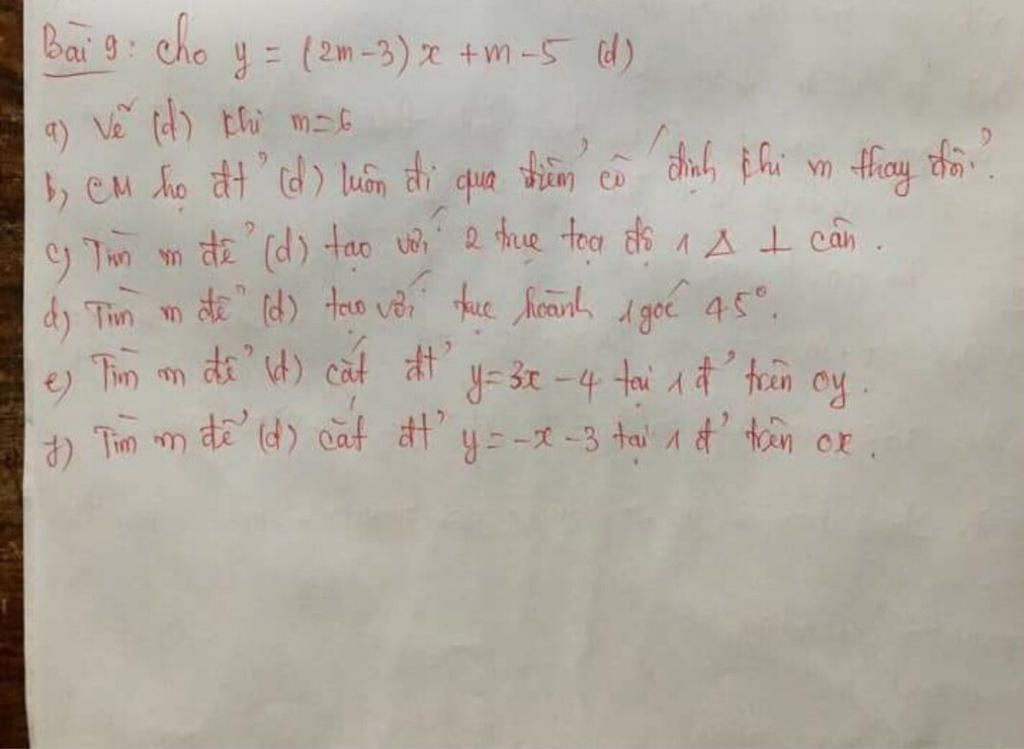 Bài 9: Cho y = (2m-3)x + m-5 (d)
a) Vẽ (d) khi m=6
b) CM họ đt' (d) luôn đi qua điểm cố định khi m thay đổi.
c) Tìm m để (d) tạo với 2 trục tọa độ 1 Δ ⊥ cân.
d) Tìm m để (d) tạo với trục hoành 1 góc 45°.
e) Tìm m để (d) cắt đt' y=3x-4 tại 1 đ' trên oy.
f) Tìm m để (d) cắt đt' y=-x-3 tại 1 đ' trên ox.